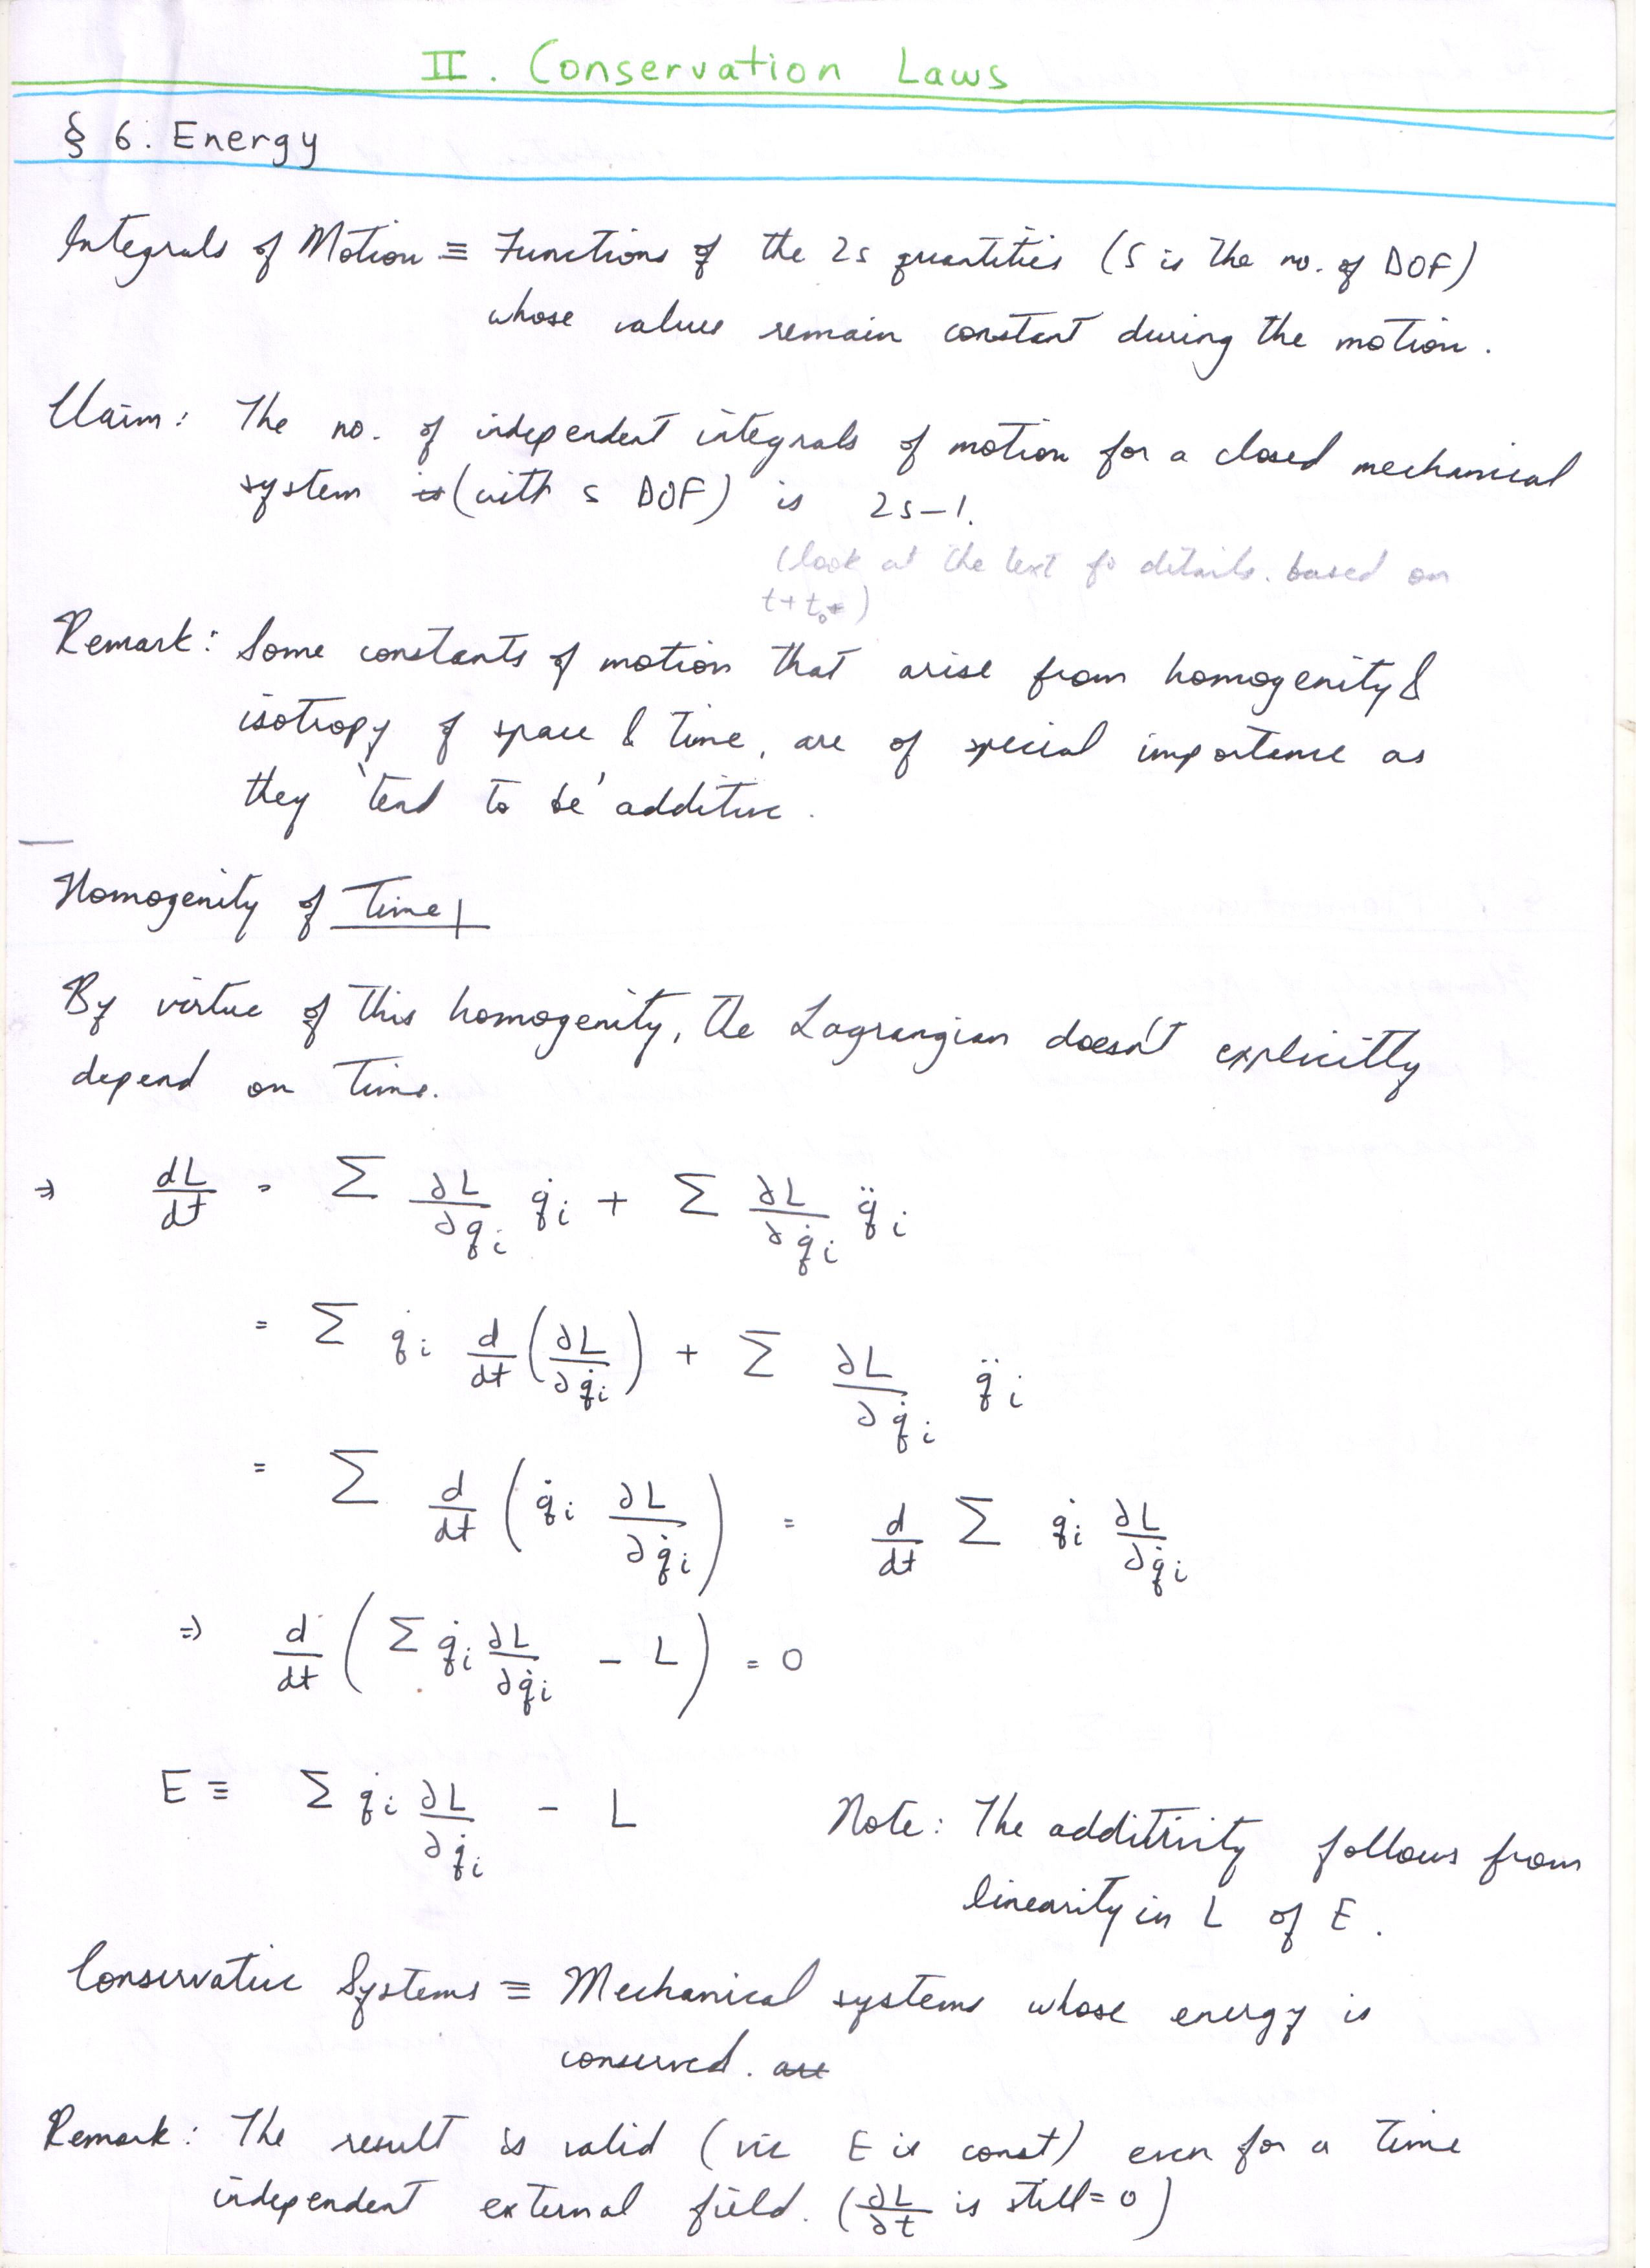 II. Conservation Laws
§ 6. Energy
Integrals of Motion ≡ Functions of the 2s quantities (S is the no. of DOF)
whose values remain constant during the motion.
Claim: The no. of independent integrals of motion for a closed mechanical
system is (with s DOF) is 2s-1.
(look at the text fo details. based on
t+t₀)
Remark: Some constants of motion that arise from homogenity &
isotropy of space & time, are of special importance as
they 'tend to be' additive.
Homogenity of Time
By virtue of this homogenity, the Lagrangian doesn't explicitly
depend on time.
⇒ dL/dt = Σ ∂L/∂qᵢ q̇ᵢ + Σ ∂L/∂q̇ᵢ q̈ᵢ
= Σ q̇ᵢ d/dt (∂L/∂q̇ᵢ) + Σ ∂L/∂q̇ᵢ q̈ᵢ
= Σ d/dt (q̇ᵢ ∂L/∂q̇ᵢ) = d/dt Σ q̇ᵢ ∂L/∂q̇ᵢ
⇒ d/dt (Σ q̇ᵢ ∂L/∂q̇ᵢ - L) = 0
E ≡ Σ q̇ᵢ ∂L/∂q̇ᵢ - L
Note: The additivity follows from
linearity in L of E.
Conservative Systems ≡ Mechanical systems whose energy is
conserved. are
Remark: The result is valid (viz E is const) even for a time
independent external field. (∂L/∂t is still = 0)